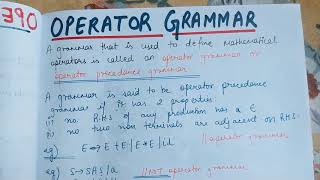 390
OPERATOR GRAMMAR
A grammar that is used to define mathematical
operators is called an operator grammar or
operator precedence grammar
A grammar is said to be operator precedence
grammar if it has 2 properties:
i) no R.H.S of any production has a ∈
ii) no two non terminals are adjacent on R.H.S.
eg) E→E+E/E*E/id //operator grammar
eg) S→SAS/a //NOT operator grammar